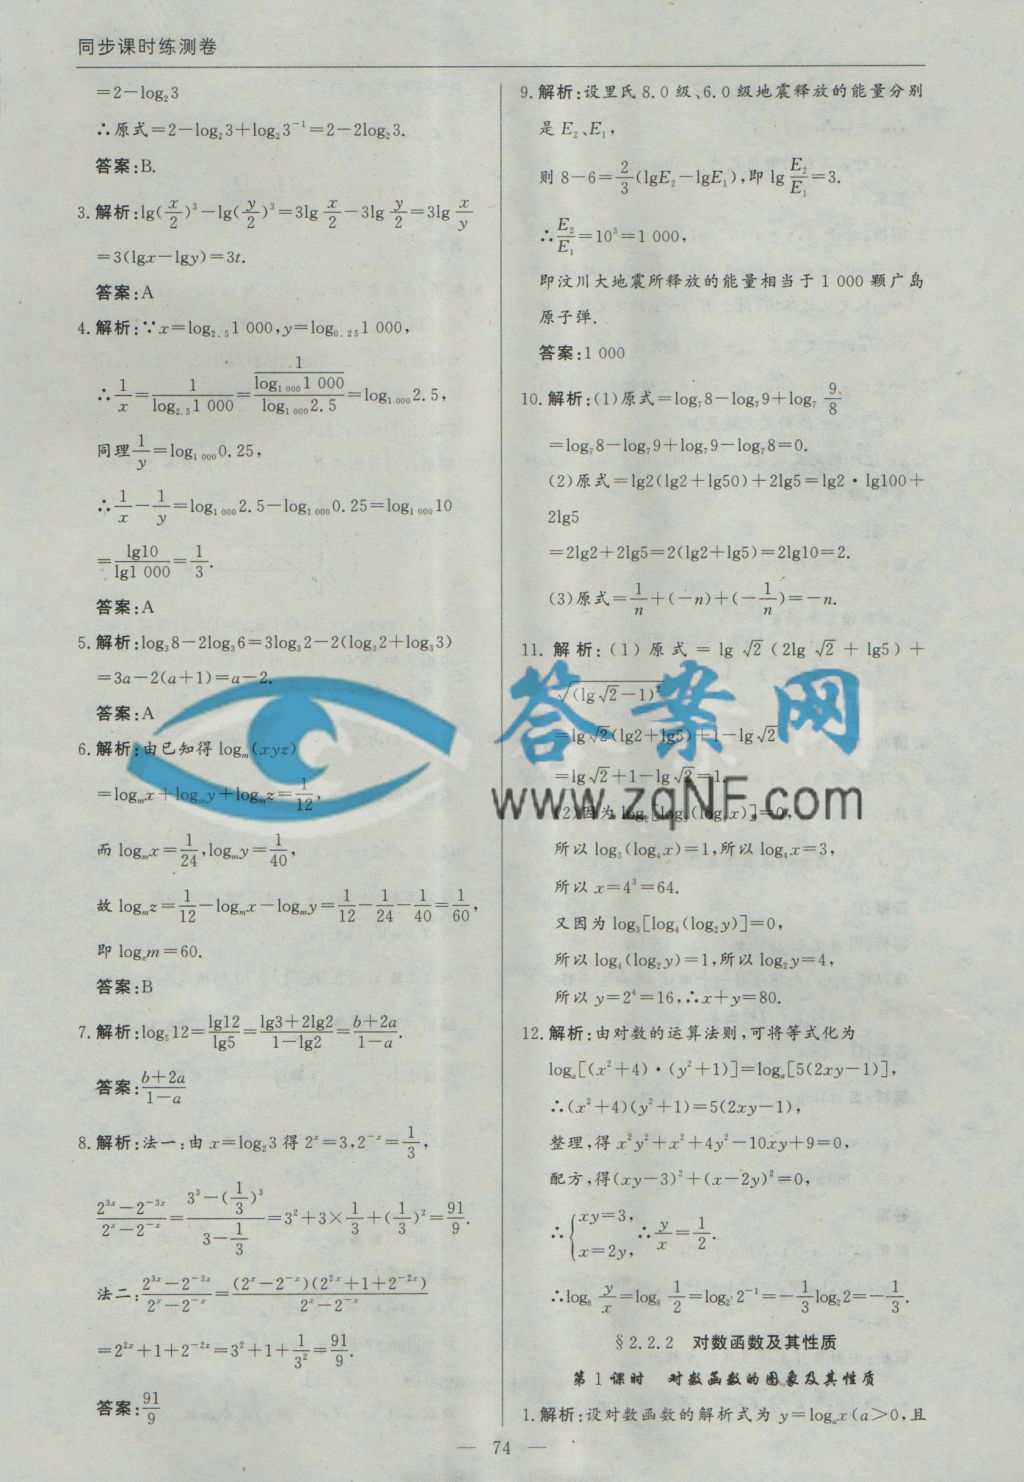 同步课时练测卷
=2-log₂3
∴原式=2-log₂3+log₂3⁻¹=2-2log₂3.
答案:B.
3.解析:lg(x/2)³-lg(y/2)³=3lg x/2-3lg y/2=3lg x/y
=3(lgx-lgy)=3t.
答案:A
4.解析:∵x=log₂.₅1 000,y=log₀.₂₅1 000,
∴1/x=1/log₂.₅1 000=(1/log₁ ₀₀₀1 000)/log₁ ₀₀₀2.5=log₁ ₀₀₀2.5,
同理1/y=log₁ ₀₀₀0.25,
∴1/x-1/y=log₁ ₀₀₀2.5-log₁ ₀₀₀0.25=log₁ ₀₀₀10
=lg10/lg1 000=1/3.
答案:A
5.解析:log₃8-2log₃6=3log₃2-2(log₃2+log₃3)
=3a-2(a+1)=a-2.
答案:A
6.解析:由已知得logₘ(xyz)
=logₘx+logₘy+logₘz=1/12,
而logₘx=1/24,logₘy=1/40,
故logₘz=1/12-logₘx-logₘy=1/12-1/24-1/40=1/60,
即log_z m=60.
答案:B
7.解析:log₅12=lg12/lg5=(lg3+2lg2)/(1-lg2)=(b+2a)/(1-a).
答案:(b+2a)/(1-a)
8.解析:法一:由x=log₂3得2ˣ=3,2⁻ˣ=1/3,
(2³ˣ-2⁻³ˣ)/(2ˣ-2⁻ˣ)=(3³-(1/3)³)/(3-1/3)=3²+3×1/3+(1/3)²=91/9.
法二:(2³ˣ-2⁻³ˣ)/(2ˣ-2⁻ˣ)=(2ˣ-2⁻ˣ)(2²ˣ+1+2⁻²ˣ)/(2ˣ-2⁻ˣ)
=2²ˣ+1+2⁻²ˣ=3²+1+1/3²=91/9.
答案:91/9
9.解析:设里氏8.0级、6.0级地震释放的能量分别
是E₂、E₁,
则8-6=2/3(lgE₂-lgE₁),即lg E₂/E₁=3.
∴E₂/E₁=10³=1 000,
即汶川大地震所释放的能量相当于1 000颗广岛
原子弹.
答案:1 000
10.解析:(1)原式=log₇8-log₇9+log₇ 9/8
=log₇8-log₇9+log₇9-log₇8=0.
(2)原式=lg2(lg2+lg50)+2lg5=lg2·lg100+
2lg5
=2lg2+2lg5=2(lg2+lg5)=2lg10=2.
(3)原式=1/n+(-n)+(-1/n)=-n.
11.解析:(1)原式=lg√2(2lg√2+lg5)+
√(lg√2-1)²
=lg√2(lg2+lg5)+1-lg√2
=lg√2+1-lg√2=1.
(2)因为log₂[log₃(log₄x)]=0,
所以log₃(log₄x)=1,所以log₄x=3,
所以x=4³=64.
又因为log₃[log₄(log₂y)]=0,
所以log₄(log₂y)=1,所以log₂y=4,
所以y=2⁴=16,∴x+y=80.
12.解析:由对数的运算法则,可将等式化为
logₐ[(x²+4)·(y²+1)]=logₐ[5(2xy-1)],
∴(x²+4)(y²+1)=5(2xy-1),
整理,得x²y²+x²+4y²-10xy+9=0,
配方,得(xy-3)²+(x-2y)²=0,
∴{xy=3, x=2y, ∴y/x=1/2.
∴log₈ y/x=log₈ 1/2=log₂³2⁻¹=-1/3log₂2=-1/3.
§2.2.2 对数函数及其性质
第1课时 对数函数的图象及其性质
1.解析:设对数函数的解析式为y=logₐx(a>0,且
— 74 —
答案网
www.zqNF.com